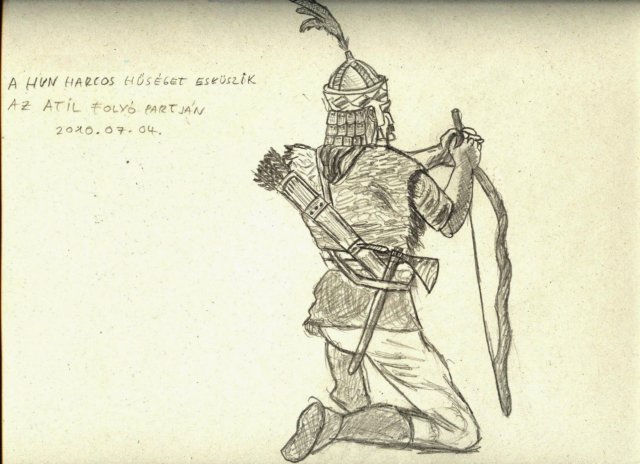 A HUN HARCOS HŰSÉGET ESKÜSZIK
AZ ATIL FOLYÓ PARTJÁN
2010.07.04.